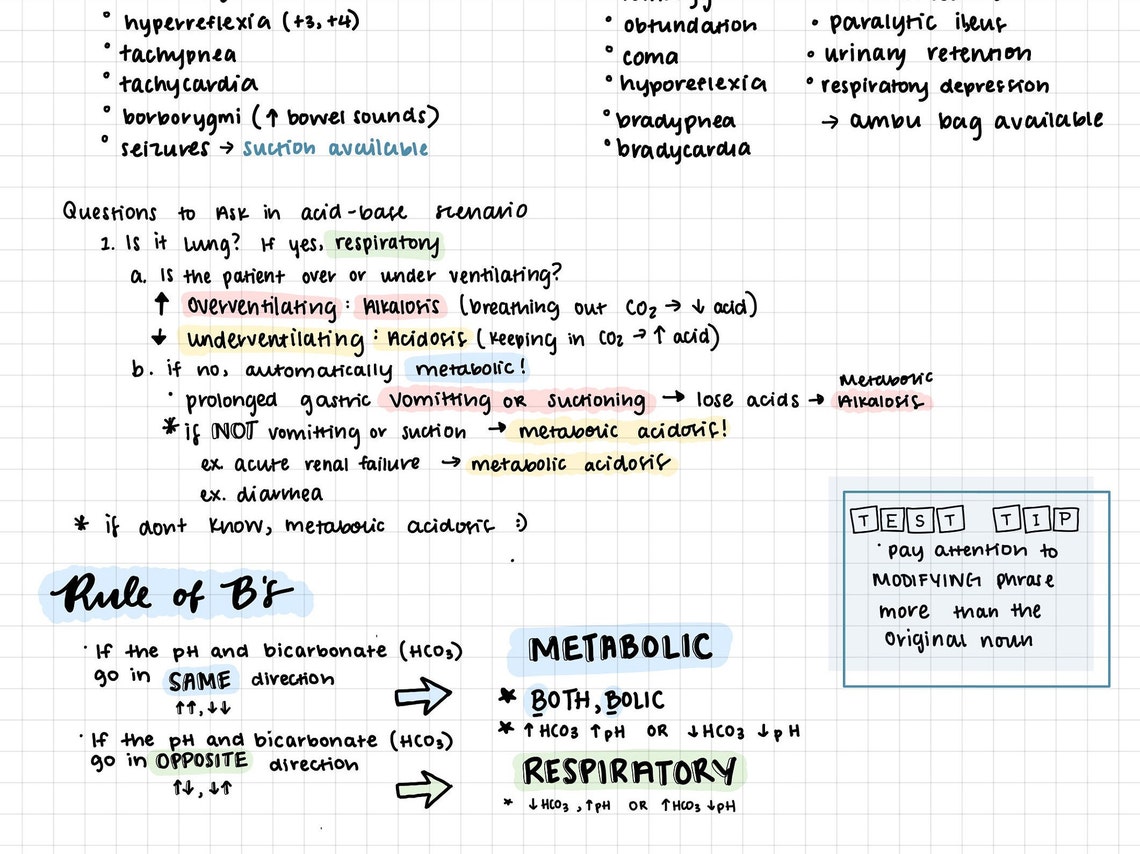 ° hyperreflexia (+3, +4)
° tachypnea
° tachycardia
° borborygmi (↑ bowel sounds)
° seizures → suction available
° obtundation
° coma
° hyporeflexia
° bradypnea
° bradycardia
• paralytic ileus
• urinary retention
° respiratory depression
→ ambu bag available
Questions to Ask in acid-base scenario
1. Is it Lung? If yes, respiratory
a. Is the patient over or under ventilating?
↑ Overventilating : Alkalosis (breathing out CO₂ → ↓ acid)
↓ underventilating : Acidosis (keeping in CO₂ → ↑ acid)
b. if no, automatically metabolic!
• prolonged gastric vomitting or suctioning → lose acids → Metabolic Alkalosis
* if NOT vomitting or suction → metabolic acidosis!
ex. acute renal failure → metabolic acidosis
ex. diarrhea
* if dont know, metabolic acidosis :)
TEST TIP
• pay attention to
MODIFYING phrase
more than the
original noun
Rule of B's
• If the pH and bicarbonate (HCO₃)
go in SAME direction
↑↑, ↓↓
METABOLIC
* BOTH, BOLIC
* ↑ HCO₃ ↑ pH OR ↓ HCO₃ ↓ pH
• If the pH and bicarbonate (HCO₃)
go in OPPOSITE direction
↑↓, ↓↑
RESPIRATORY
* ↓ HCO₃, ↑ pH OR ↑ HCO₃ ↓ pH